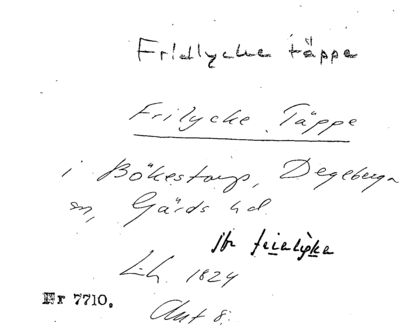 Fridlycke täppe
Frilycke Täppe
i Bökestorp, Degeberga
sn, Gärds hd
jfr
Lih. 1824
Nr 7710.
Akt 8.